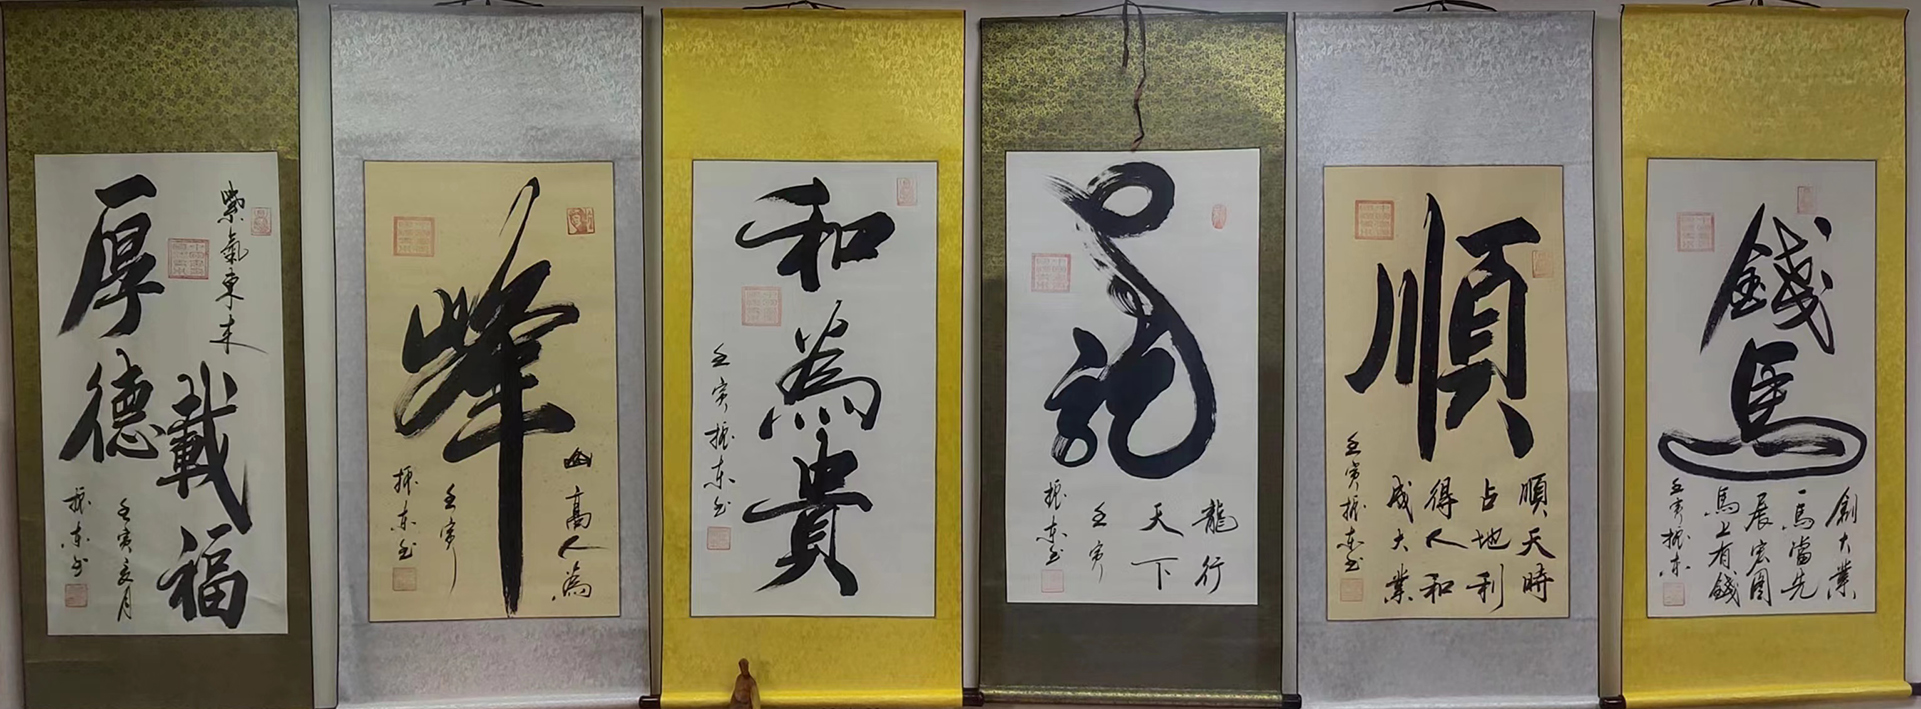 紫氣東来
厚德
載福
壬寅亥月
振东书
峰
山高人為
壬寅
振东书
和為貴
壬寅振东书
龍
龍行
天下
壬寅
振东书
順
順天時
占地利
得人和
成大業
壬寅振东书
錢馬
創大業
一馬當先
展宏圖
馬上有錢
壬寅振东